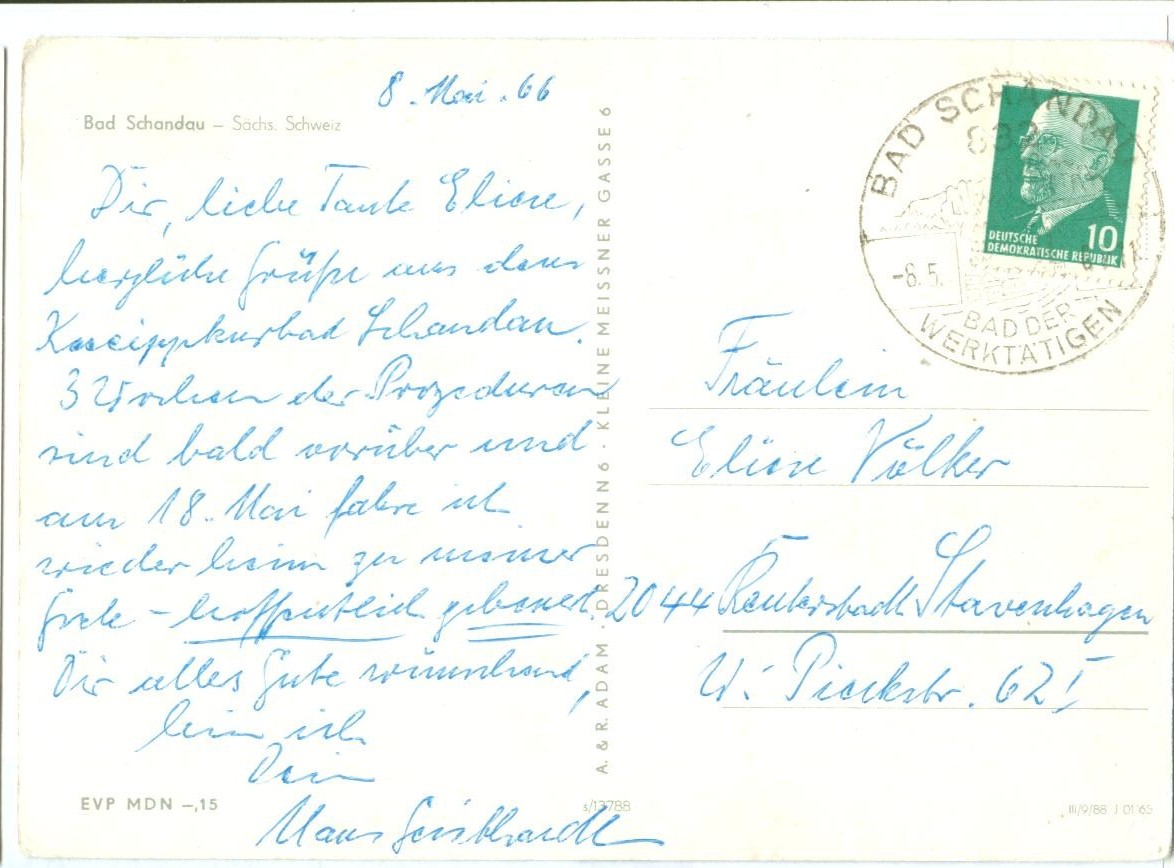 8. Mai. 66
Bad Schandau – Sächs. Schweiz
Dir, liebe Tante Eliese,
herzliche Grüße aus dem
Kneippkurbad Schandau.
3 Wochen der Prozeduren
sind bald vorüber und
am 18. Mai fahre ich
wieder heim zu meiner
Grete – hoffentlich gebessert.
Dir alles Gute wünschend,
bin ich
Dein
Hans
EVP MDN –,15
A. & R. ADAM · DRESDEN N 6 · KLEINE MEISSNER GASSE 6
s/13788
BAD SCHANDAU
-8.5.
BAD DER
WERKTÄTIGEN
10
DEUTSCHE
DEMOKRATISCHE REPUBLIK
Fräulein
Eliese Völker
2044 Reuterstadt Stavenhagen
W. Pieckstr. 62 I
III/9/88 J 01 65